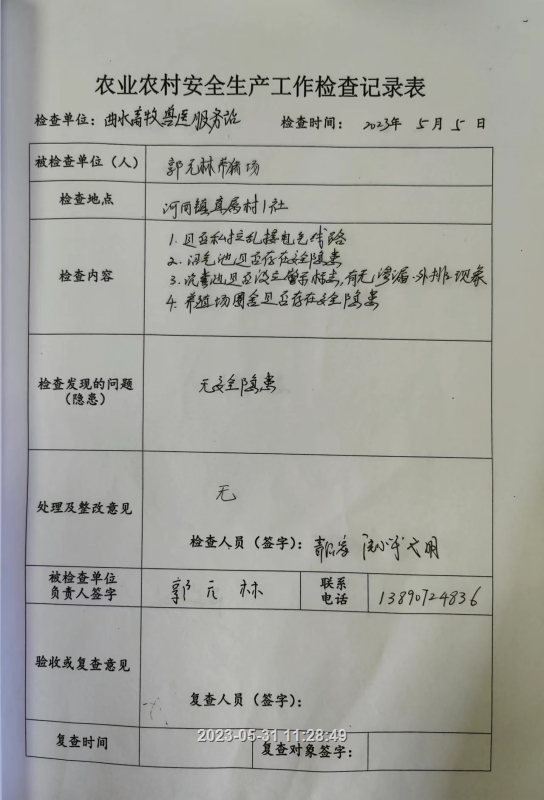 农业农村安全生产工作检查记录表
检查单位：曲水畜牧兽医服务站 检查时间：2023年5月5日
被检查单位（人） 郭元林养猪场
检查地点 河 镇 村1社
检查内容
1. 是否私拉乱接电气线路
2. 沼气池是否存在安全隐患
3. 沉粪池是否设立警示标志，有无渗漏、外排现象
4. 养殖场圈舍是否存在安全隐患
检查发现的问题
（隐患）
无安全隐患
处理及整改意见
无
检查人员（签字）：
被检查单位
负责人签字
郭元林
联系
电话
13890724836
验收或复查意见
复查人员（签字）：
2023-05-31 11:28:49
复查时间 复查对象签字：